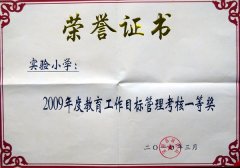 荣誉证书
实验小学：
2009年度教育工作目标管理考核一等奖
二〇一〇年三月